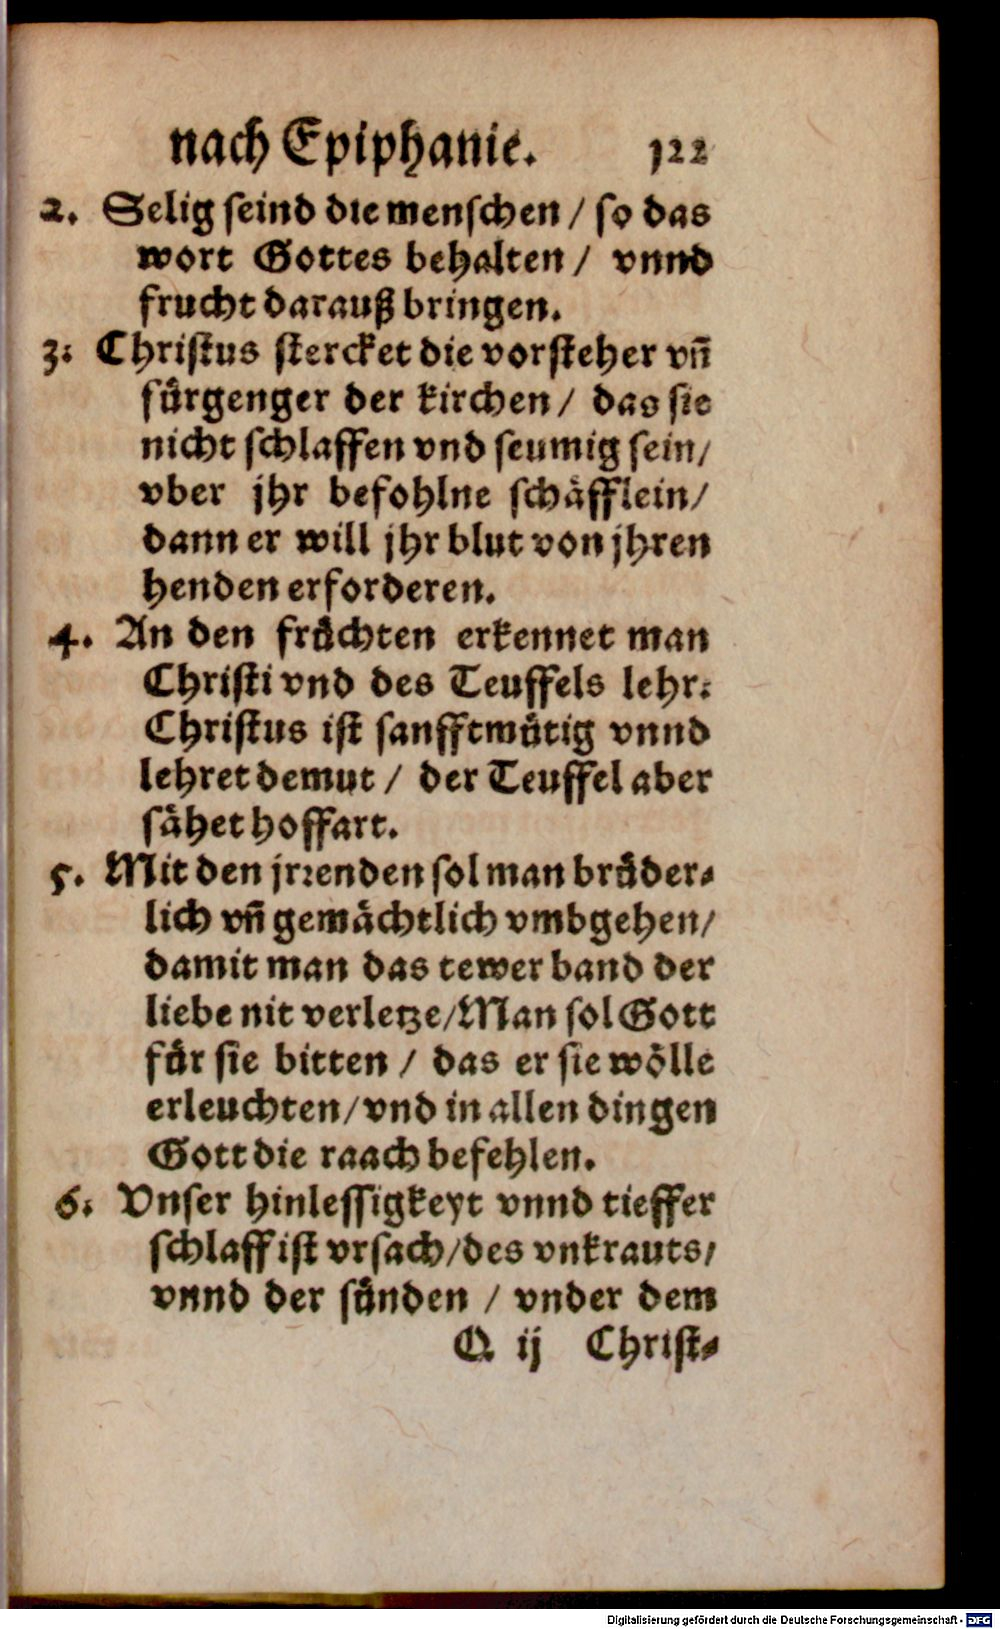 nach Epiphanie. 122
2. Selig seind die menschen / so das
wort Gottes behalten / vnnd
frucht darauß bringen.
3. Christus stercket die vorsteher vñ
fuͤrgenger der kirchen / das sie
nicht schlaffen vnd seumig sein /
vber jhr befohlne schaͤfflein /
dann er will jhr blut von jhren
henden erforderen.
4. An den fruͤchten erkennet man
Christi vnd des Teuffels lehr.
Christus ist sanfftmuͤtig vnnd
lehret demut / der Teuffel aber
saͤhet hoffart.
5. Mit den jrꝛenden sol man bruͤder⸗
lich vñ gemaͤchtlich vmbgehen /
damit man das tewer band der
liebe nit verletze / Man sol Gott
fuͤr sie bitten / das er sie woͤlle
erleuchten / vnd in allen dingen
Gott die raach befehlen.
6. Vnser hinlessigkeyt vnnd tieffer
schlaff ist vrsach / des vnkrauts /
vnnd der suͤnden / vnder dem
Q ij Christ⸗
Digitalisierung gefördert durch die Deutsche Forschungsgemeinschaft - DFG